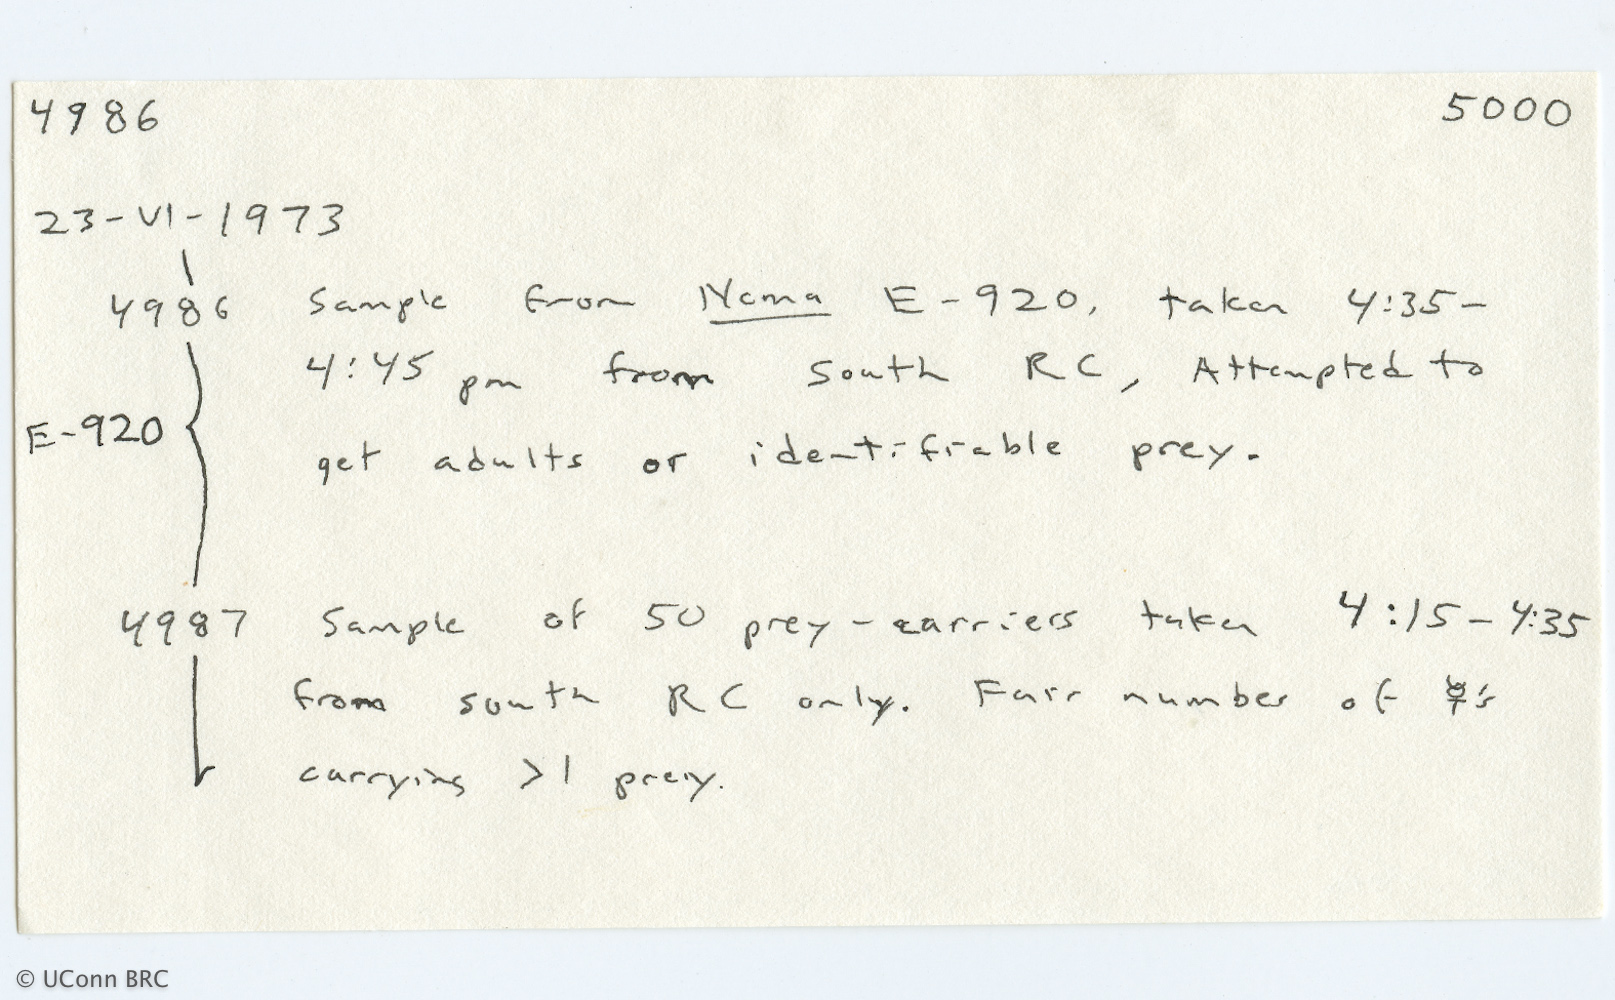 4986 5000
23-VI-1973
4986 Sample from Nama E-920, taken 4:35-
4:45 pm from south RC, Attempted to
E-920
get adults or identifiable prey.
4987 Sample of 50 prey-carriers taken 4:15-4:35
from south RC only. Fair number of ☿'s
carrying >1 prey.
© UConn BRC